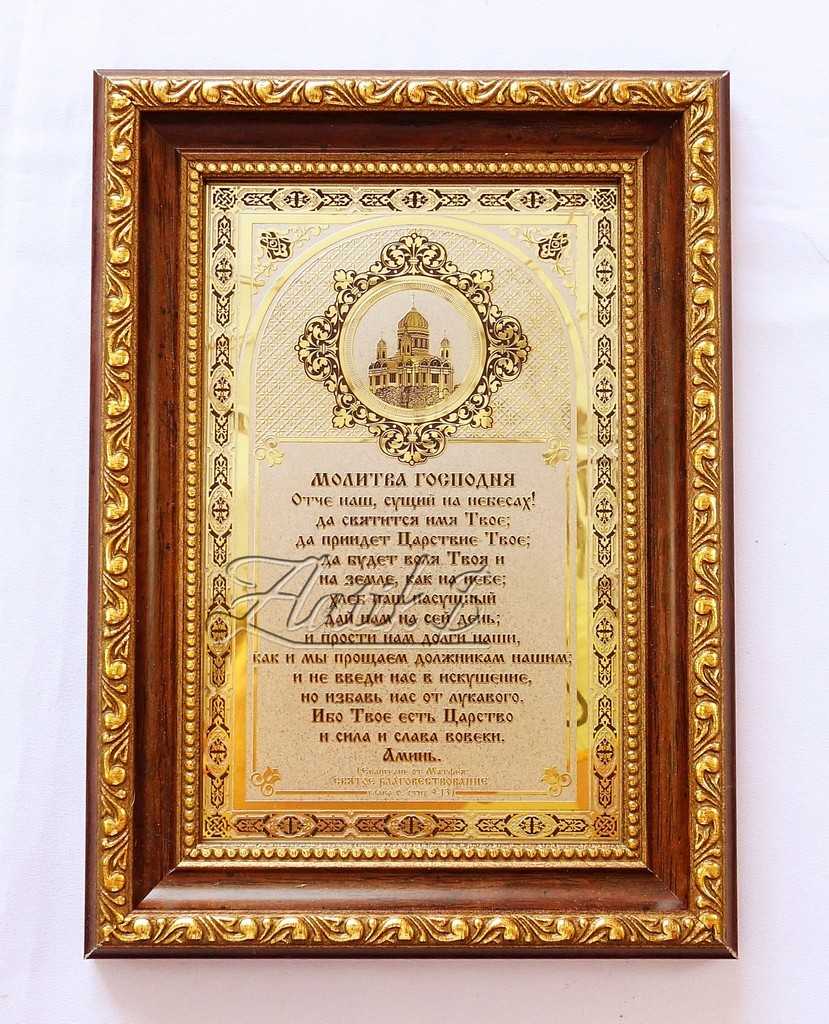 МОЛИТВА ГОСПОДНЯ
Отче наш, сущий на небесах!
да святится имя Твое;
да приидет Царствие Твое;
да будет воля Твоя и
на земле, как на небе;
хлеб наш насущный
дай нам на сей день;
и прости нам долги наши,
как и мы прощаем должникам нашим;
и не введи нас в искушение,
но избавь нас от лукавого.
Ибо Твое есть Царство
и сила и слава вовеки.
Аминь.
(Евангелие от Матфея
СВЯТОЕ БЛАГОВЕСТВОВАНИЕ
глава 6, стих 9-13)